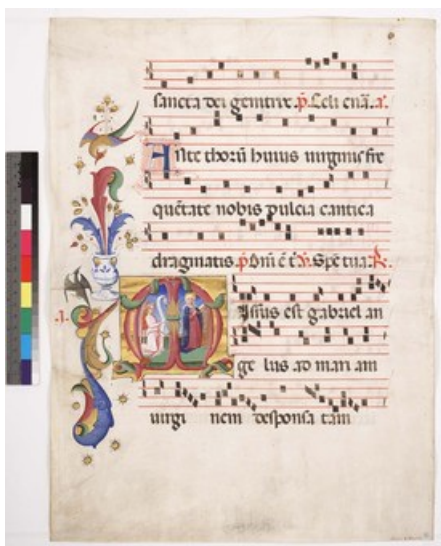 sancta dei genitrix. p̄. Celi enā. a.
Ante thorū huius uirginis fre
quētate nobis dulcia cantica
dragmatis. p̄. Dm̄ ē t̄. v. Spē tua. R.
Missus est gabriel an
ge lus ad mari am
uirgi nem desponsa tam